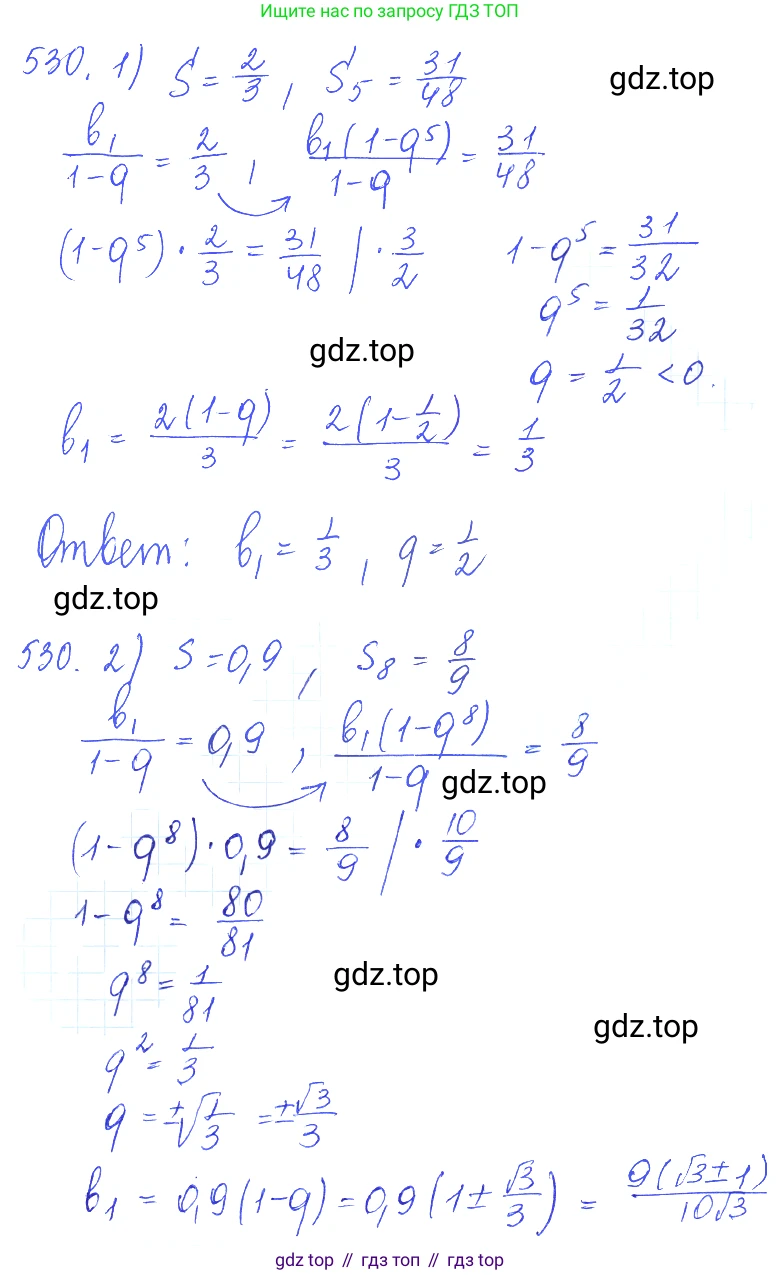 Ищите нас по запросу ГДЗ ТОП
530. 1) S = 2/3, S₅ = 31/48
gdz.top
b₁/(1-q) = 2/3, b₁(1-q⁵)/(1-q) = 31/48
(1-q⁵) · 2/3 = 31/48 | · 3/2
1-q⁵ = 31/32
q⁵ = 1/32
gdz.top
q = 1/2 < 0.
b₁ = 2(1-q)/3 = 2(1-1/2)/3 = 1/3
Ответ: b₁ = 1/3, q = 1/2
gdz.top
530. 2) S = 0,9, S₈ = 8/9
b₁/(1-q) = 0,9, b₁(1-q⁸)/(1-q) = 8/9
gdz.top
(1-q⁸) · 0,9 = 8/9 | · 10/9
1-q⁸ = 80/81
q⁸ = 1/81
gdz.top
gdz.top
q² = 1/3
q = ±√(1/3) = ±√3/3
b₁ = 0,9(1-q) = 0,9(1±√3/3) = 9(√3±1)/10√3
gdz top // гдз топ // gdz top